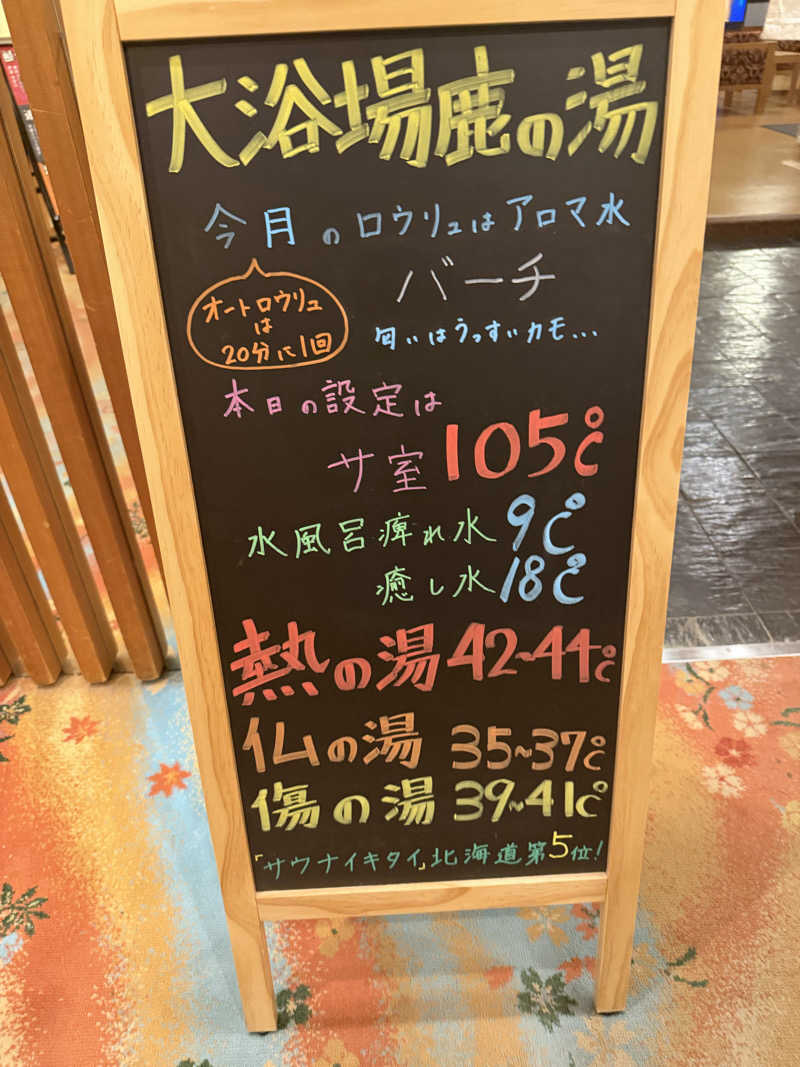 大浴場鹿の湯
今月のロウリュはアロマ水
バーチ
オートロウリュ
は
20分に1回
匂いはうっすいカモ...
本日の設定は
サ室 105℃
水風呂痺れ水 9℃
癒し水 18℃
熱の湯 42~44℃
仏の湯 35~37℃
傷の湯 39~41℃
「サウナイキタイ」北海道第5位!